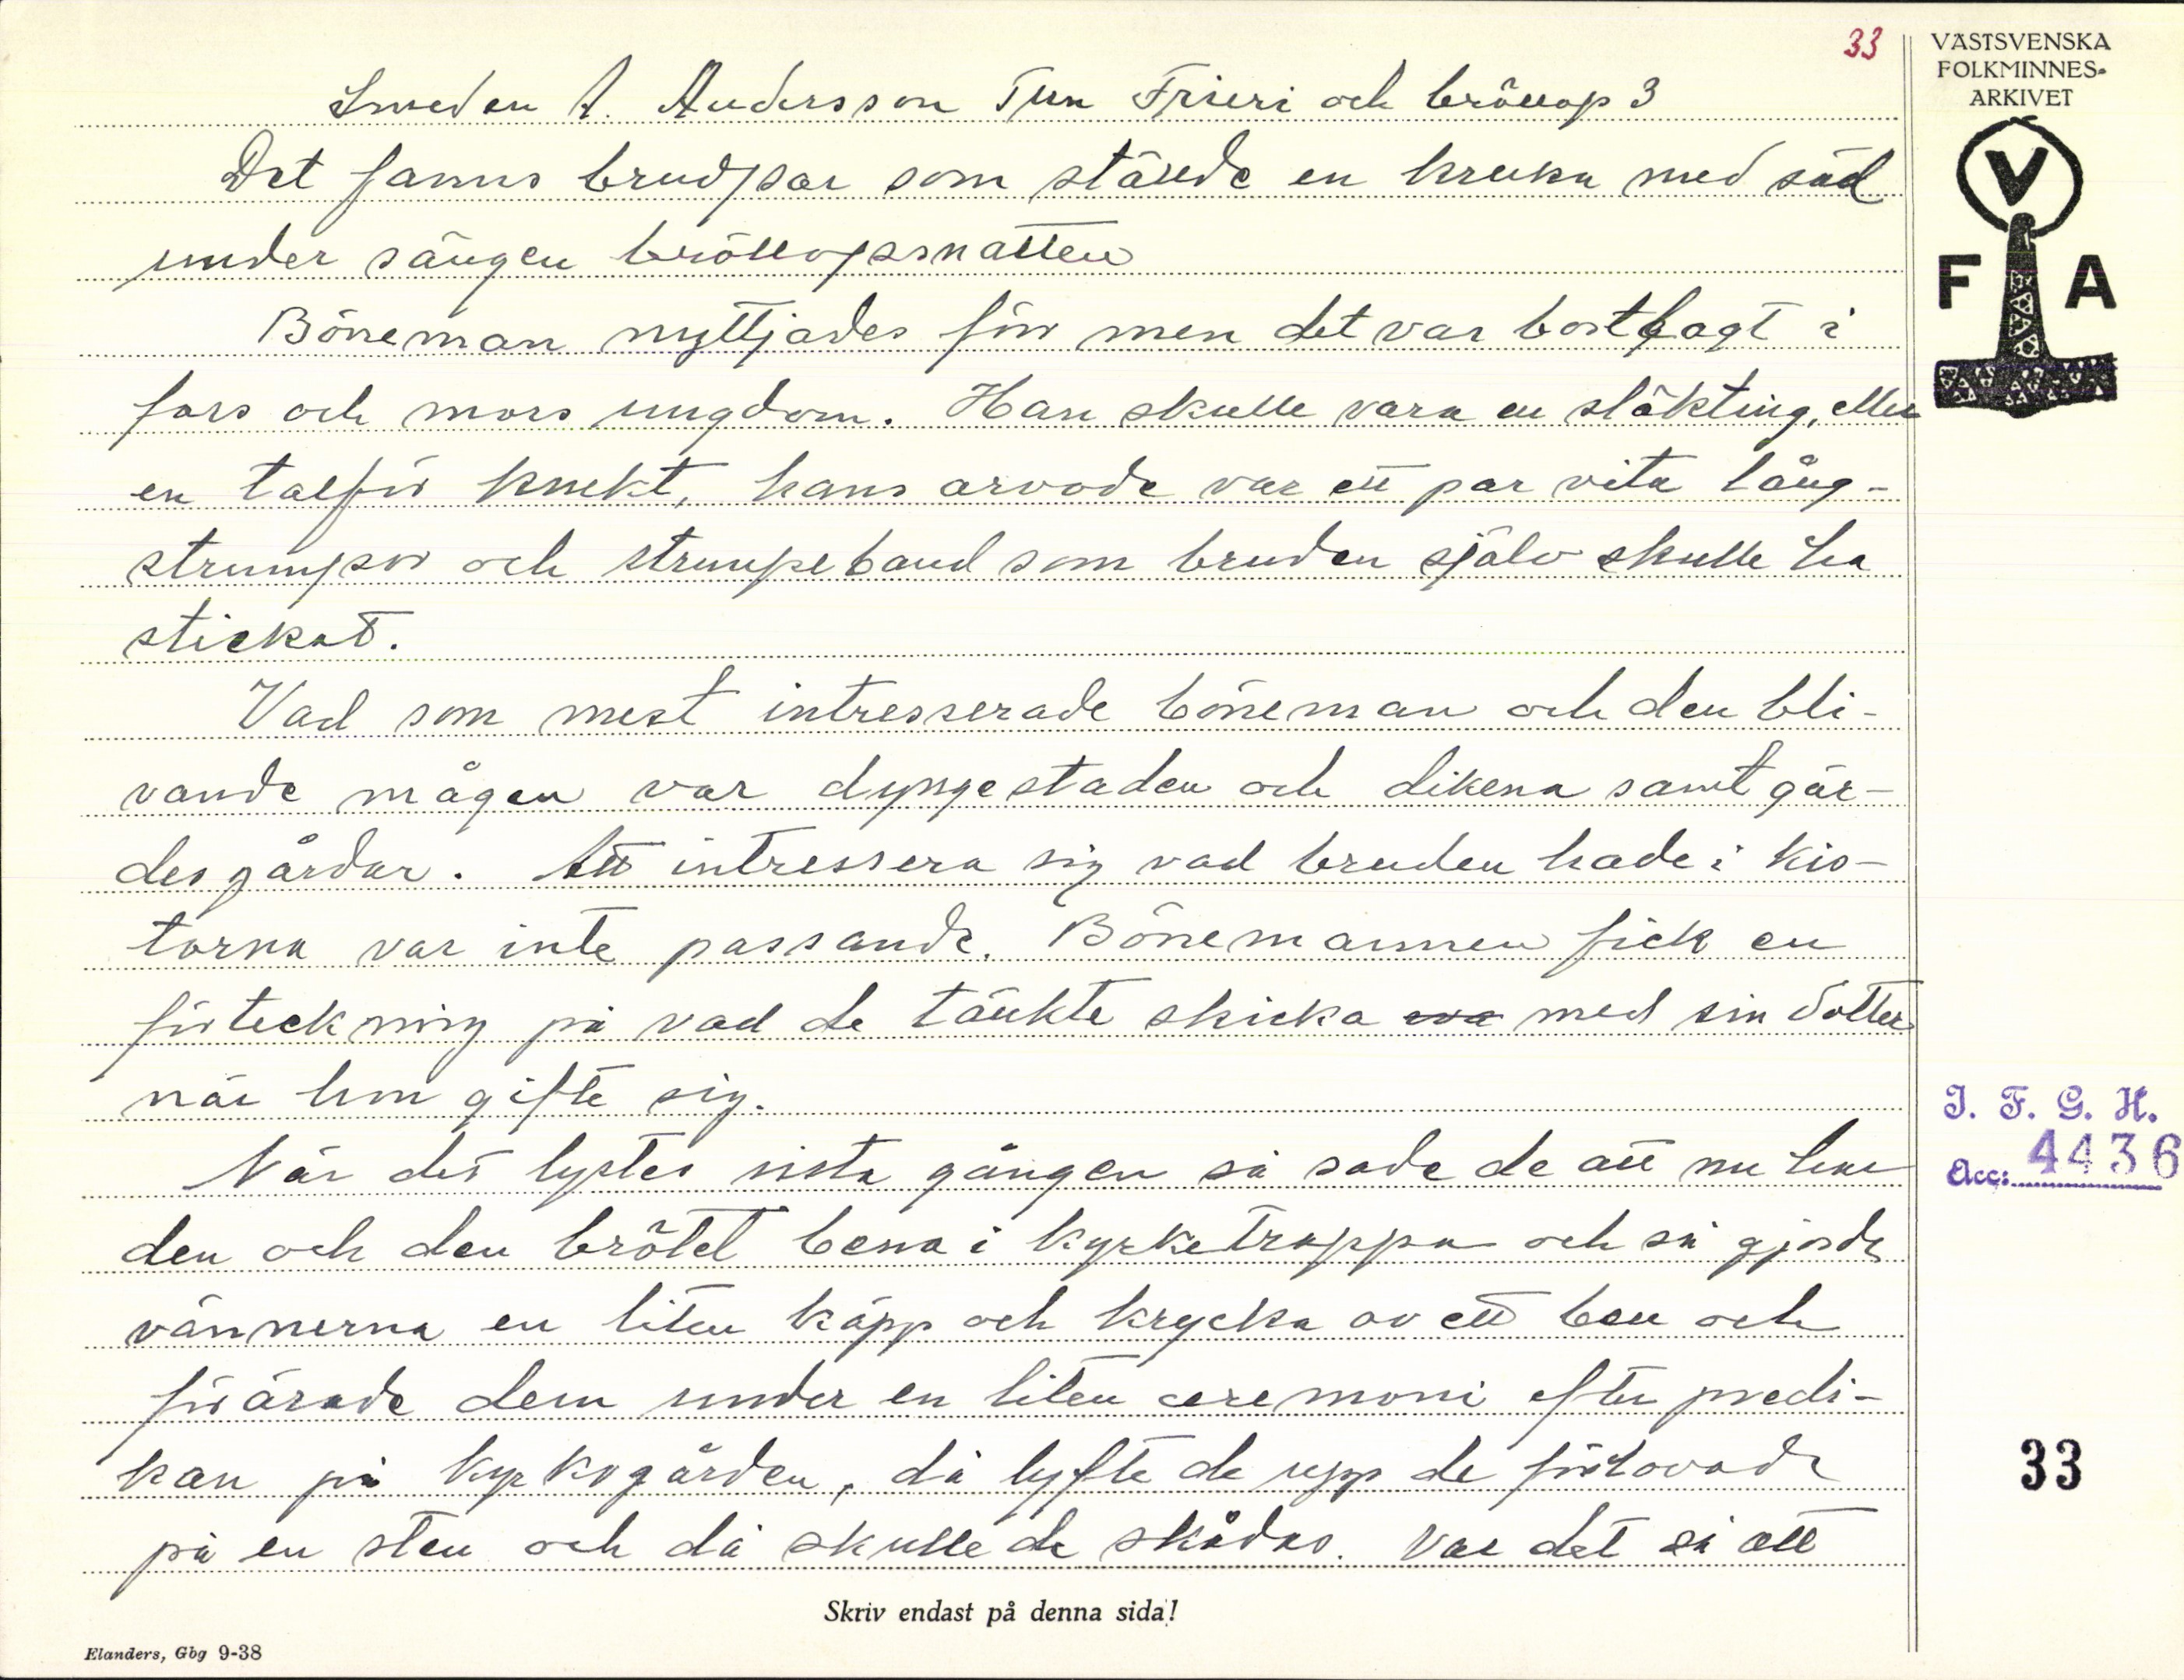 33
Smeden A. Andersson Tun Frieri och bröllop 3
Det fanns brudpar som stälde en kruka med säd
under sängen bröllopsnatten
Böneman nyttjades förr men det var bortlagt i
fars och mors ungdom. Han skulle vara en släkting, eller
en talför knekt, hans arvode var ett par vita lång-
strumpor och strumpeband som bruden själv skulle ha
stickat.
Vad som mest intresserade böneman och den bli-
vande mågen var dyngestaden och dikena samt gär-
desgårdar. Att intressera sig vad bruden hade i kis-
torna var inte passande. Bönemannen fick en
förteckning på vad de tänkte skicka med sin dotter
när hon gifte sig.
När det lystes sista gången så sade de att nu har
den och den brötet bena i kyrketrappa och så gjorde
vännerna en liten käpp och krycka av ett ben och
förärade dem under en liten ceremoni efter predi-
kan på kyrkogården, då lyfte de upp de förlovade
på en sten och då skulle de skådas. Var det så att
Skriv endast på denna sida!
Elanders, Gbg 9-38
VÄSTSVENSKA
FOLKMINNES-
ARKIVET
V
F A
I. F. G. H.
Acc: 4436
33